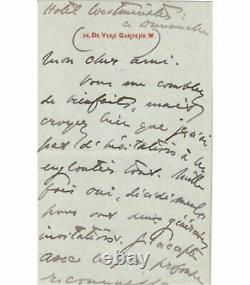 Hotel Westminster
ce Dimanche
34, DE VERE GARDENS. W.
Mon cher ami.
Vous me comblez
de bienfaits, mais
croyez bien que j'ai
pas d'invitations à les
engloutir tous. Mille
fois oui, décidément,
pour vos deux généreuses
invitations. J'accepte
avec la plus profonde
reconnaissance